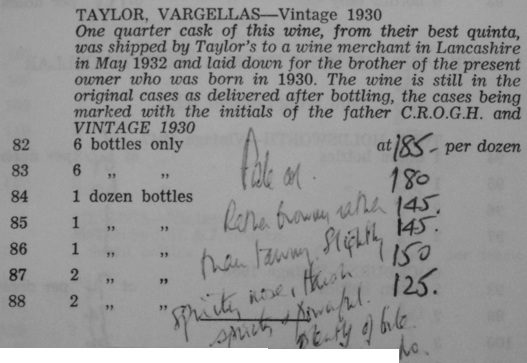 TAYLOR, VARGELLAS—Vintage 1930
One quarter cask of this wine, from their best quinta,
was shipped by Taylor's to a wine merchant in Lancashire
in May 1932 and laid down for the brother of the present
owner who was born in 1930. The wine is still in the
original cases as delivered after bottling, the cases being
marked with the initials of the father C.R.O.G.H. and
VINTAGE 1930
82 6 bottles only at 185- per dozen
83 6 ,, ,, 180
84 1 dozen bottles 145.
85 1 ,, ,, 145.
86 1 ,, ,, 150
87 2 ,, ,, 125.
88 2 ,, ,,
Pale col.
Rather browny rather
than tawny. Slightly
spirity nose, Harsh
spirity & powerful.
plenty of bite.